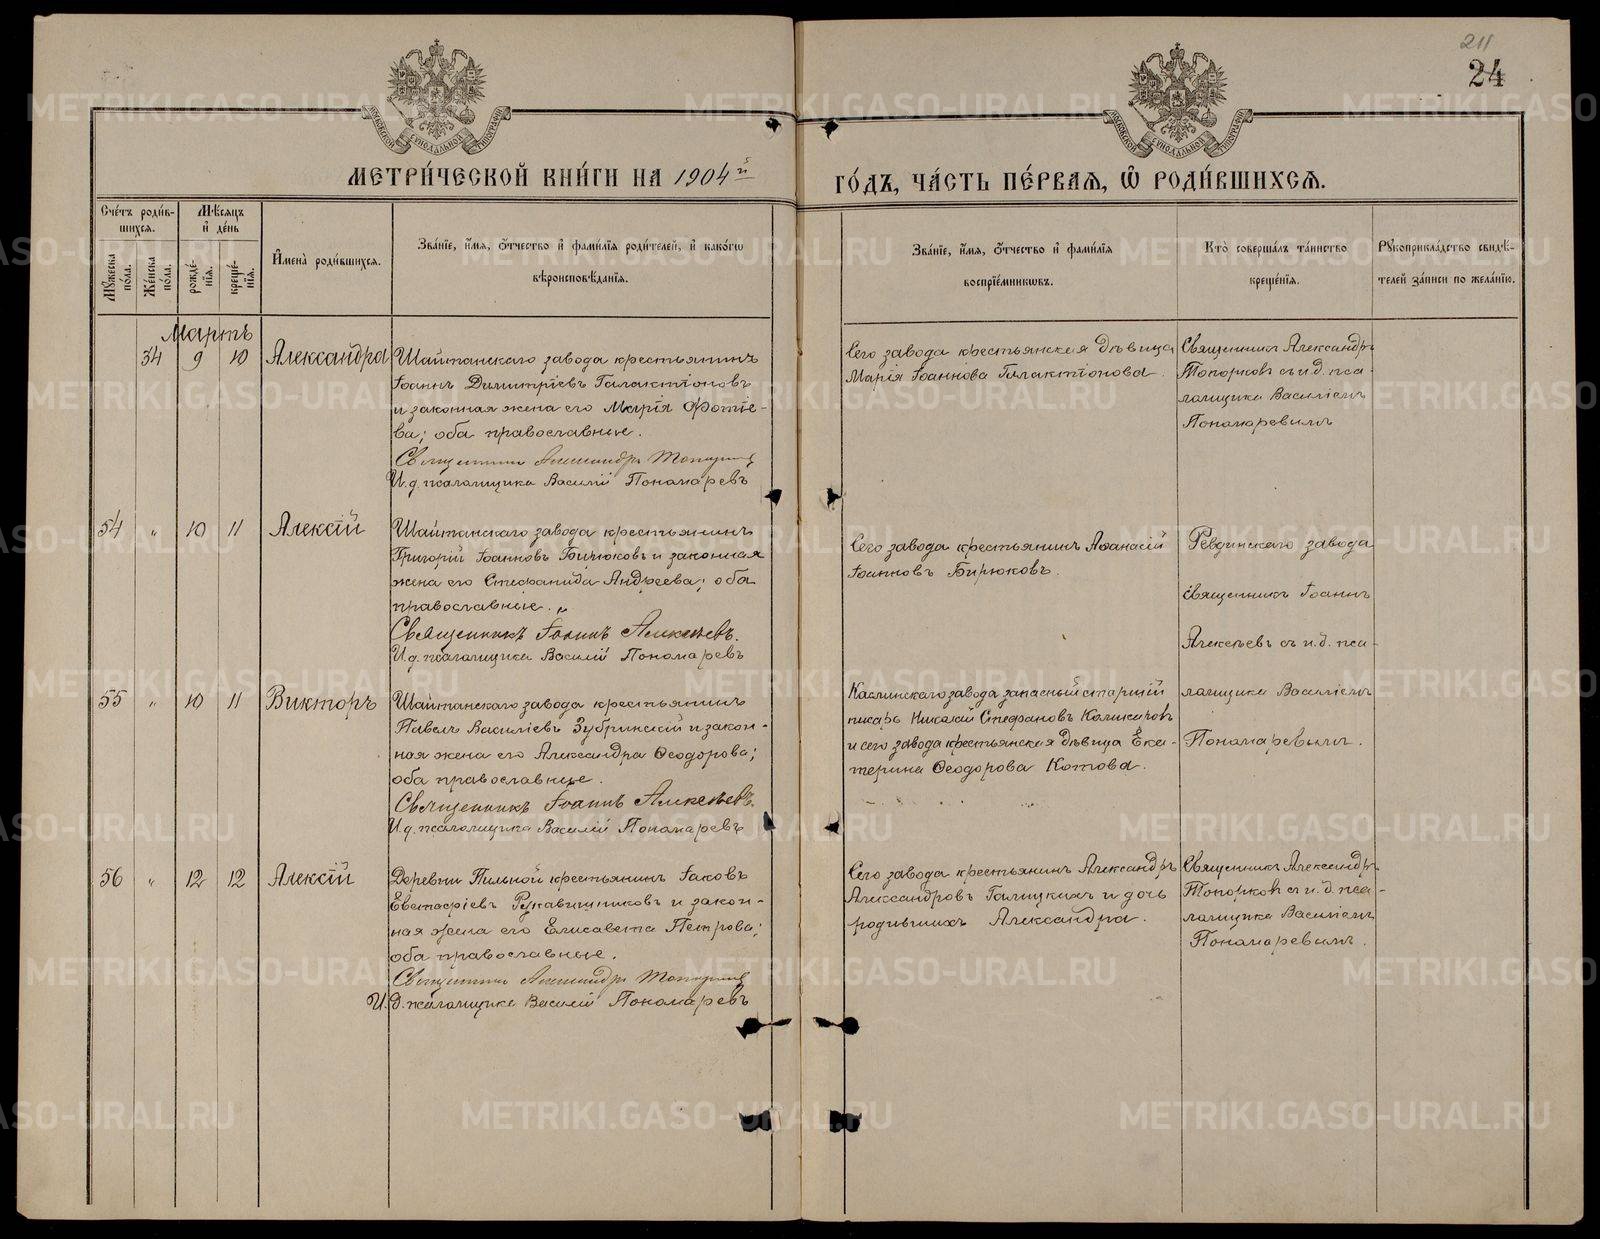 211
24
МОСКОВСКОЙ СУНОДАЛЬНОЙ ТИПОГРАФІИ
МОСКОВСКОЙ СУНОДАЛЬНОЙ ТИПОГРАФІИ
МЕТРИ́ЧЕСКОЙ КНИ́ГИ НА 1904й
ГО́ДЪ, ЧА́СТЬ ПЕ́РВАѦ, Ѽ РОДИ́ВШИХСѦ.
Сче́тъ роди́в-
шихсѧ.
Мꙋ́жеска по́ла.
Же́нска по́ла.
Мѣ́сѧцъ
и҆ де́нь
рожде́-
нїѧ.
креще́-
нїѧ.
И҆мена̀ роди́вшихсѧ.
Зва́нїе, и҆́мѧ, ѻ҆́тчество и҆ фами́лїѧ роди́телей, и҆ како́гѡ
вѣроисповѣ́данїѧ.
Зва́нїе, и҆́мѧ, ѻ҆́тчество и҆ фами́лїѧ
воспрїе́мникѡвъ.
Кто̀ соверша́лъ та́инство
креще́нїѧ.
Рꙋкоприкла́дство свидѣ́-
телей за́писи по жела́нїю.
Мартъ
34 9 10 Александра
Шайтанскаго завода крестьянинъ
Іоаннъ Димитріевъ Галактіоновъ
и законная жена его Марія Фотіе-
ва; оба православные.
Священникъ Александръ Топорковъ
И.д. псаломщика Василій Пономаревъ
Сего завода крестьянская дѣвица
Марія Іоаннова Галактіонова.
Священникъ Александръ
Топорковъ съ и.д. пса-
ломщика Василіемъ
Пономаревымъ
54 " 10 11 Алексій
Шайтанскаго завода крестьянинъ
Григорій Іоанновъ Бирюковъ и законная
жена его Стефанида Андреева; оба
православные.
Священникъ Іоаннъ Алексѣевъ.
И.д. псаломщика Василій Пономаревъ
Сего завода крестьянинъ Аѳанасій
Іоанновъ Бирюковъ.
Ревдинскаго завода
священникъ Іоаннъ
Алексѣевъ съ и.д. пса-
ломщика Василіемъ
Пономаревымъ.
55 " 10 11 Викторъ
Шайтанскаго завода крестьянинъ
Павелъ Василіевъ Зубринскій и закон-
ная жена его Александра Ѳеодорова;
оба православные.
Священникъ Іоаннъ Алексѣевъ.
И.д. псаломщика Василій Пономаревъ
Каслинскаго завода запасный старшій
писарь Николай Стефановъ
и сего завода крестьянская дѣвица Ека-
терина Ѳеодорова Котова.
56 " 12 12 Алексій
Деревни Пильной крестьянинъ Іаковъ
Евстафіевъ Рукавишниковъ и закон-
ная жена его Елисавета Петрова;
оба православные.
Священникъ Александръ Топорковъ
И.д. псаломщика Василій Пономаревъ
Сего завода крестьянинъ Александръ
Александровъ Галицкихъ и дочь
родившихъ Александра.
Священникъ Александръ
Топорковъ съ и.д. пса-
ломщика Василіемъ
Пономаревымъ.
METRIKI.GASO-URAL.RU